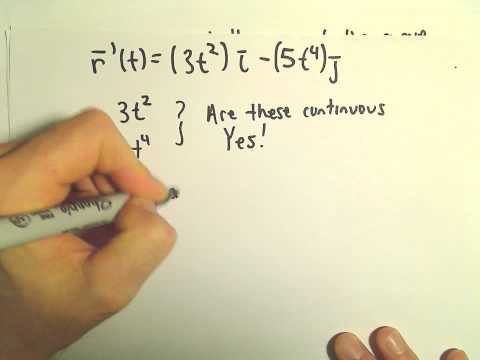 r̄'(t) = (3t²) i - (5t⁴) j
3t² } Are these continuous
t⁴ Yes!